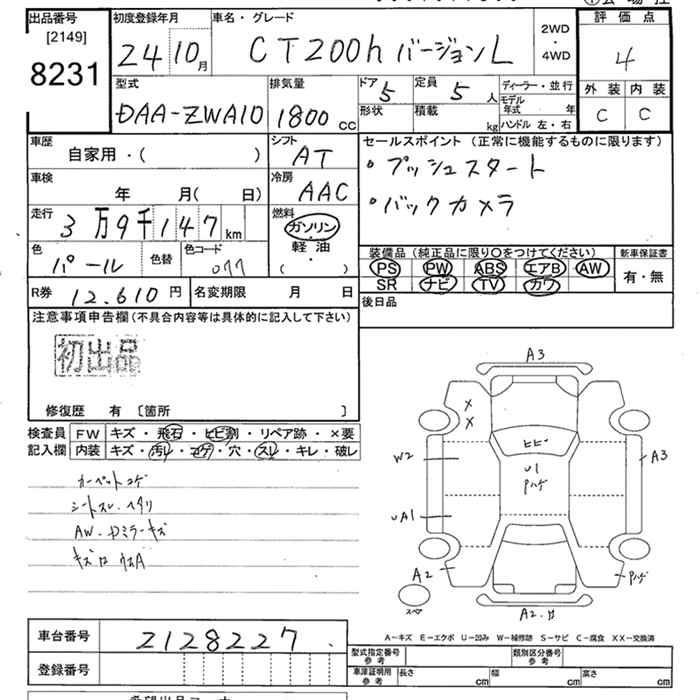 出品番号
[2149]
8231
初度登録年月
24 10月
車名・グレード
CT200h バージョンL
2WD
・
4WD
評価点
4
外装 内装
C C
型式
DAA-ZWA10
排気量
1800cc
ドア
5
定員
5人
ディーラー・並行
形状
積載
kg
モデル年式 年
ハンドル 左・右
車歴
自家用・( )
シフト
AT
セールスポイント (正常に機能するものに限ります)
・プッシュスタート
・バックカメラ
車検
年 月( 日)
冷房
AAC
走行
3万9千147km
燃料
ガソリン
・
軽油
( )
色
パール
色替
色コード
077
装備品 (純正品に限り〇をつけてください)
PS PW ABS エアB AW
SR ナビ TV カワ
新車保証書
有・無
R券 12.610円
名変期限 月 日
後日品
注意事項申告欄(不具合内容等は具体的に記入して下さい)
初出品
修復歴 有 〔箇所 〕
検査員記入欄
FW キズ・飛石・ヒビ割・リペア跡・×要
内装 キズ・汚レ・コゲ・穴・スレ・キレ・破レ
カーペットコゲ
シートスレ・ヘタリ
AW・Dミラーキズ
A3
××
ヒビ
U1
Pハゲ
W2
A3
UA1
A2
Pハゲ
スペア
A2
A-キズ E-エクボ U-凹み W-補修跡 S-サビ C-腐食 XX-交換済
車台番号
2128227
登録番号
型式指定番号
参考
類別区分番号
参考
車庫証明用
参考
長さ cm
幅 cm
高さ cm